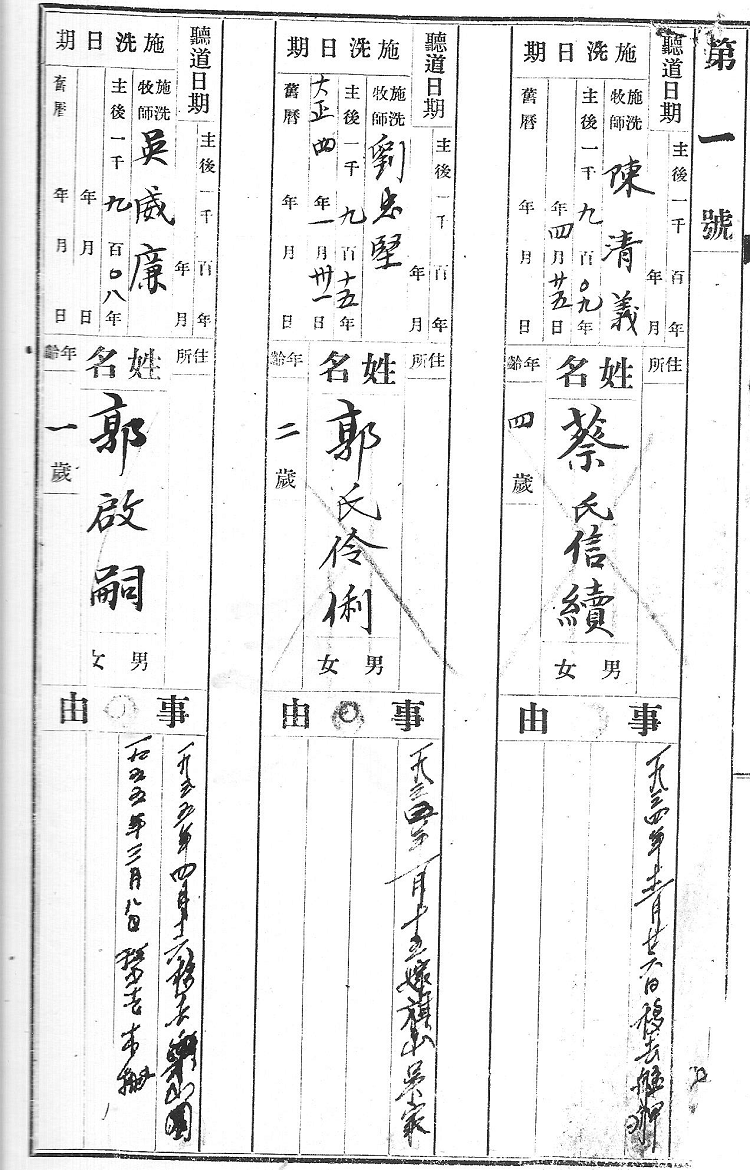 第一號
聽道日期
主後一千 百 年
年 月
施洗日期
施洗牧師 陳清義
主後一千九百〇九年
年四月廿五日
舊曆 年 月 日
住所
姓名
蔡氏信續
男
女
年齡
四歲
事由
一九三四年十二月廿六日移去艋舺
聽道日期
主後一千 百 年
年 月
施洗日期
施洗牧師 劉忠堅
主後一千九百十五年
大正四年一月卅一日
舊曆 年 月 日
住所
姓名
郭氏伶俐
男
女
年齡
二歲
事由
一月十五嫁旗山吳家
聽道日期
主後一千 百 年
年 月
施洗日期
施洗牧師 吳威廉
主後一千九百〇八年
年 月 日
舊曆 年 月 日
住所
姓名
郭啟嗣
男
女
年齡
一歲
事由
一九五五年四月十六移去樂山園
一九五五年三月